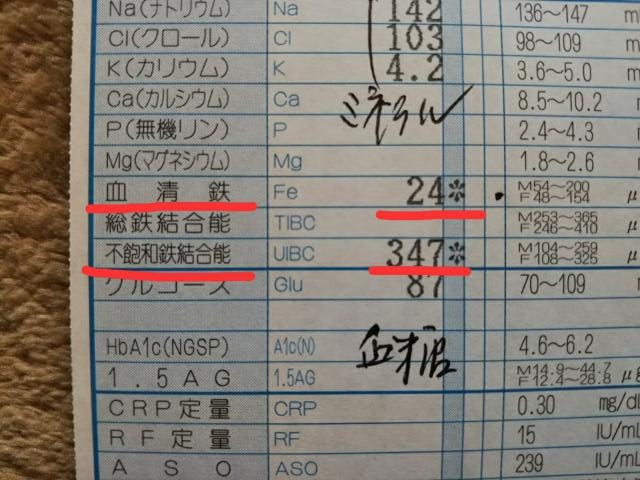 Na(ナトリウム) Na 142 136～147 m
Cl(クロール) Cl 103 98～109 m
K(カリウム) K 4.2 3.6～5.0 m
Ca(カルシウム) Ca ミネラル 8.5～10.2
P(無機リン) P 2.4～4.3 m
Mg(マグネシウム) Mg 1.8～2.6 m
血清鉄 Fe 24* M54～200 F48～154 μ
総鉄結合能 TIBC M253～365 F246～410 μ
不飽和鉄結合能 UIBC 347* M104～259 F108～325 μ
グルコース Glu 87 70～109 m
HbA1c(NGSP) A1c(N) 血糖 4.6～6.2
1.5AG 1.5AG M14.9～44.7 F12.4～28.8 μg
CRP定量 CRP 0.30 mg/dL
RF定量 RF 15 IU/mL
ASO ASO 239 IU/mL